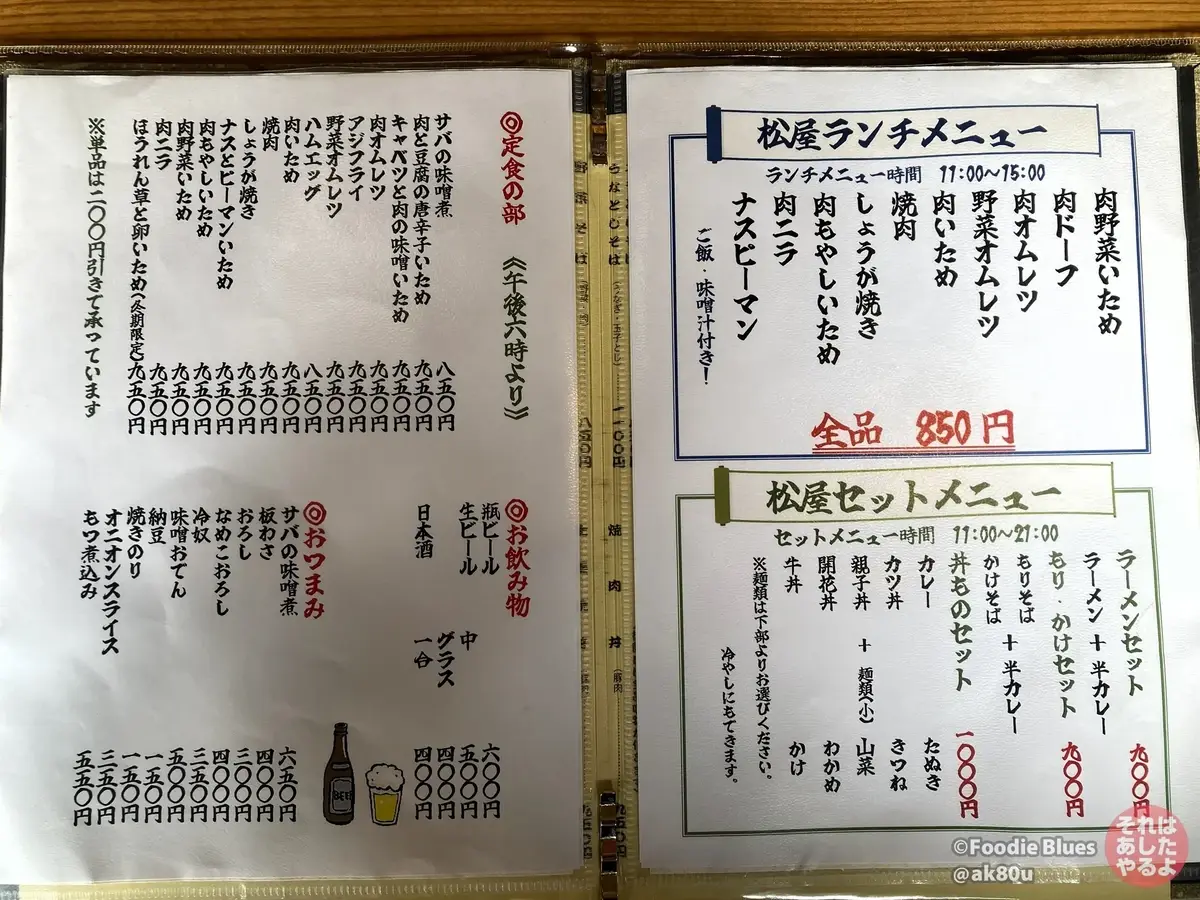 松屋ランチメニュー
ランチメニュー時間 11:00～15:00
肉野菜いため
肉ドーフ
肉オムレツ
野菜オムレツ
肉いため
焼肉
しょうが焼き
肉もやしいため
肉ニラ
ナスピーマン
ご飯・味噌汁付き！
全品 850円
松屋セットメニュー
セットメニュー時間 11:00～21:00
ラーメンセット 九〇〇円
ラーメン ＋ 半カレー
もり・かけセット 九〇〇円
もりそば
かけそば ＋ 半カレー
丼ものセット 一〇〇〇円
カレー たぬき
カツ丼 きつね
親子丼 ＋ 麺類(小) 山菜
開花丼 わかめ
牛丼 かけ
※麺類は下部よりお選びください。
冷やしにもできます。
◎定食の部 《午後六時より》
サバの味噌煮 八五〇円
肉と豆腐の唐辛子いため 九五〇円
キャベツと肉の味噌いため 九五〇円
肉オムレツ 九五〇円
アジフライ 九五〇円
野菜オムレツ 九五〇円
ハムエッグ 八五〇円
肉いため 九五〇円
焼肉 九五〇円
しょうが焼き 九五〇円
ナスとピーマンいため 九五〇円
肉もやしいため 九五〇円
肉野菜いため 九五〇円
肉ニラ 九五〇円
ほうれん草と卵いため(冬期限定) 九五〇円
※単品は二〇〇円引きで承っています
◎お飲み物
瓶ビール 六〇〇円
生ビール 中 五〇〇円
グラス 四〇〇円
日本酒 一合 四〇〇円
BEER
◎おつまみ
サバの味噌煮 六五〇円
板わさ 四〇〇円
おろし 三〇〇円
なめこおろし 四〇〇円
冷奴 三五〇円
味噌おでん 五〇〇円
納豆 一五〇円
焼きのり 一五〇円
オニオンスライス 三五〇円
もつ煮込み 五五〇円
©Foodie Blues
@ak80u
それは
あした
やるよ